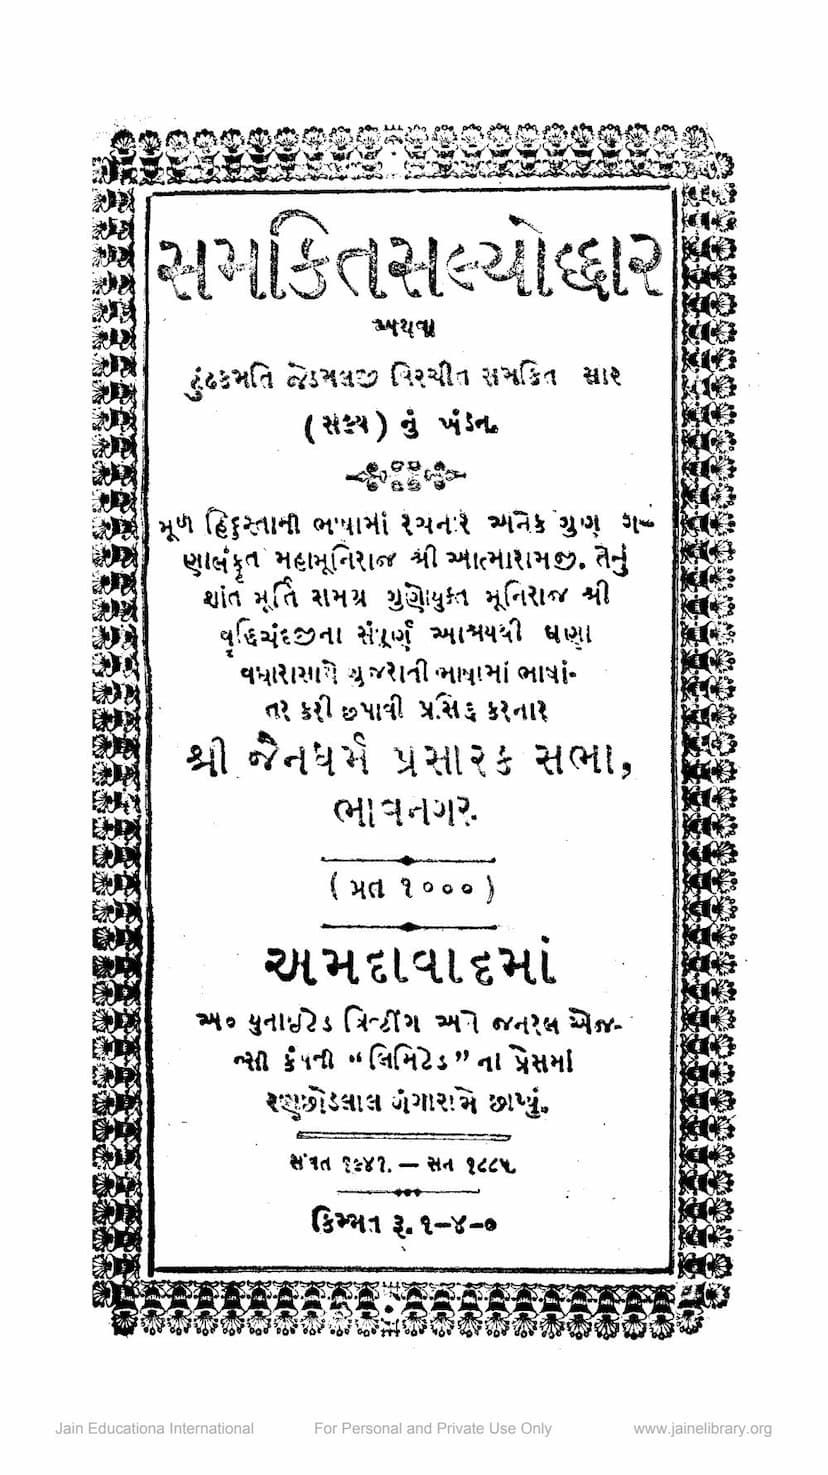 સમકિતસલ્યોદ્ધાર
અથવા
ઢુંઢકમતિ જેઠમલજી વિરચીત સમકિત સાર
(સલ્ય) નું ખંડન.
મૂળ હિંદુસ્તાની ભાષામાં રચનાર અનેક ગુણ ગ-
ણાલંકૃત મહામૂનિરાજ શ્રી આત્મારામજી. તેનું
શાંત મૂર્તિ સમગ્ર ગુણોયુક્ત મૂનિરાજ શ્રી
વૃદ્ધિચંદજીના સંપૂર્ણ આશ્રયથી ઘણા
વધારાસાથે ગુજરાતી ભાષામાં ભાષાં-
તર કરી છપાવી પ્રસિદ્ધ કરનાર
શ્રી જૈનધર્મ પ્રસારક સભા,
ભાવનગર.
(પ્રત ૧૦૦૦)
અમદાવાદમાં
અ૦ યુનાઈટેડ પ્રિન્ટીંગ અને જનરલ એજ-
ન્સી કંપની "લિમિટેડ" ના પ્રેસમાં
રણછોડલાલ ગંગારામે છાપ્યું.
સંવત ૧૯૪૧. — સન ૧૮૮૫.
કિમ્મત રૂ. ૧-૪-૦
Jain Educationa International For Personal and Private Use Only www.jainelibrary.org